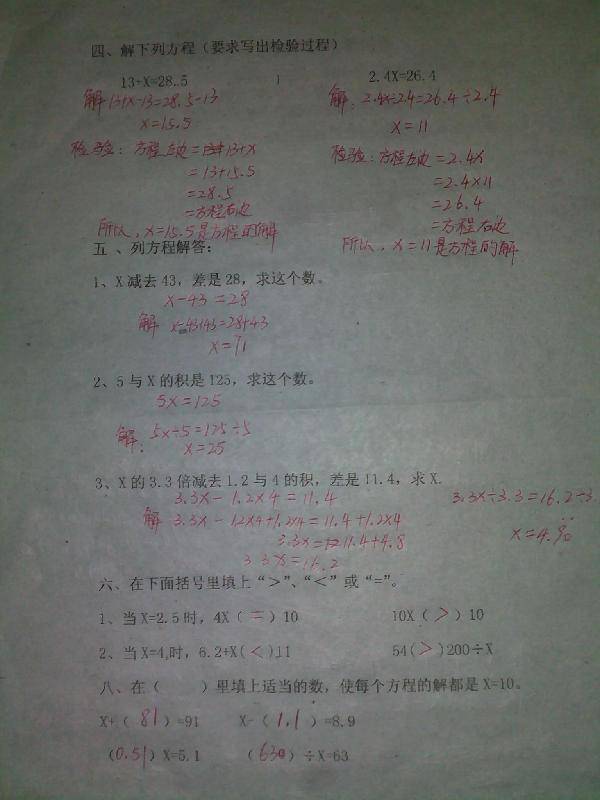 四、解下列方程（要求写出检验过程）
13+X=28.5 2.4X=26.4
解 13+x-13=28.5-13 解：2.4x÷2.4=26.4÷2.4
x=15.5 x=11
检验：方程左边=13+x 检验：方程左边=2.4x
=13+15.5 =2.4×11
=28.5 =26.4
=方程右边 =方程右边
所以，x=15.5是方程的解 所以，x=11是方程的解
五、列方程解答：
1、X减去43，差是28，求这个数。
x-43=28
解 x-43+43=28+43
x=71
2、5与X的积是125，求这个数。
5x=125
解：5x÷5=125÷5
x=25
3、X的3.3倍减去1.2与4的积，差是11.4，求X.
3.3x-1.2×4=11.4 3.3x÷3.3=16.2÷3.
解 3.3x-1.2×4+1.2×4=11.4+1.2×4
3.3x=11.4+4.8 x=4.90
3.3x=16.2
六、在下面括号里填上“＞”、“＜”或“=”。
1、当X=2.5时，4X（ = ）10 10X（ > ）10
2、当X=4时，6.2+X(<)11 54(>)200÷X
八、在（ ）里填上适当的数，使每个方程的解都是X=10。
X+（ 81 ）=91 X-（ 1.1 ）=8.9
（0.51）X=5.1 （630）÷X=63